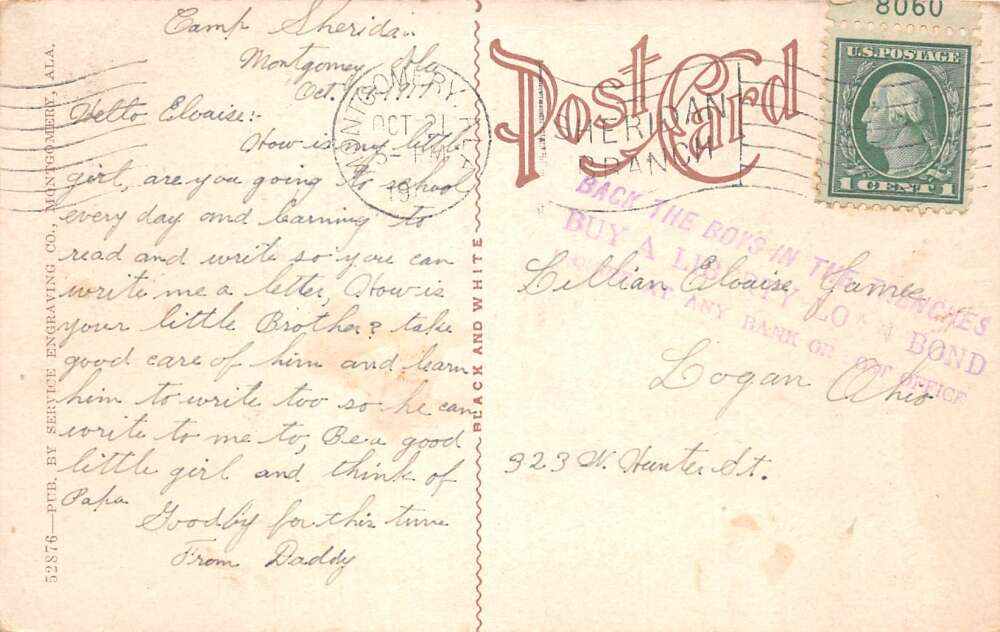 Camp Sheridan
Montgomey Ala
Oct. 1917
Hello Eloaise:-
How is my little
girl, are you going to school
every day and learning to
read and write so you can
write me a letter, How is
your little Brother? take
good care of him and learn
him to write too so he can
write to me to, Be a good
little girl and think of
Papa
Goodby for this time
From Daddy
52876—PUB. BY SERVICE ENGRAVING CO., MONTGOMERY, ALA.
BLACK AND WHITE
Post Card
MONTGOMERY, ALA.
OCT 21
5- PM
SHERIDAN
BRANCH
8060
U.S. POSTAGE
1 CENT 1
BACK THE BOYS IN THE TRENCHES
BUY A LIBERTY LOAN BOND
AT ANY BANK OR POST OFFICE
Lillian Eloaise
Logan Ohio
923 W. Hunter St.